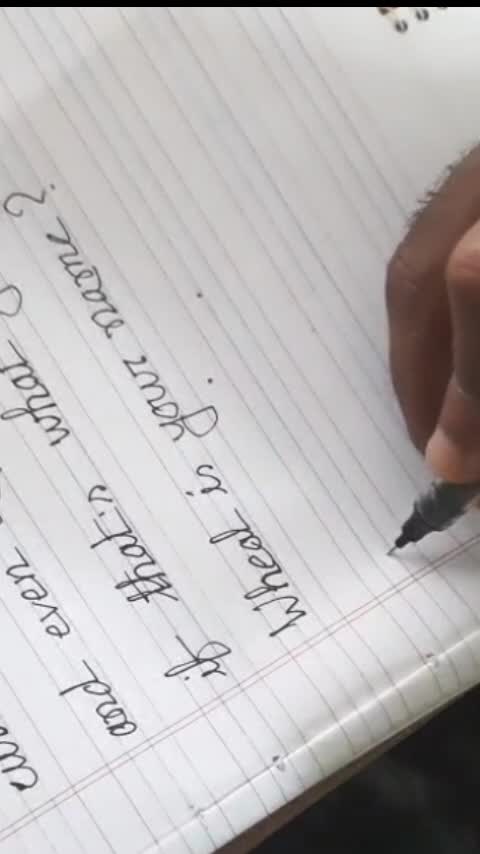 and even
if that is what
What is your name ?